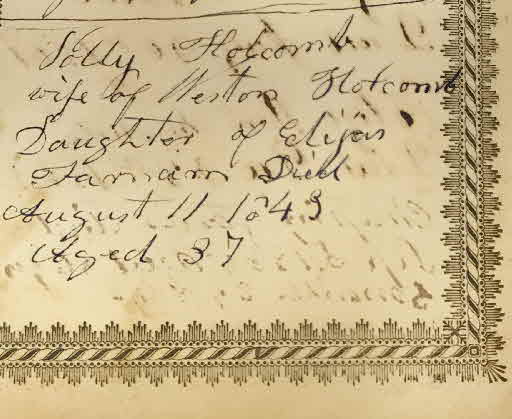 Polly Holcomb
wife of Weston Holcomb
Daughter of Elijas
Farnam Died
August 11 1843
Aged 37